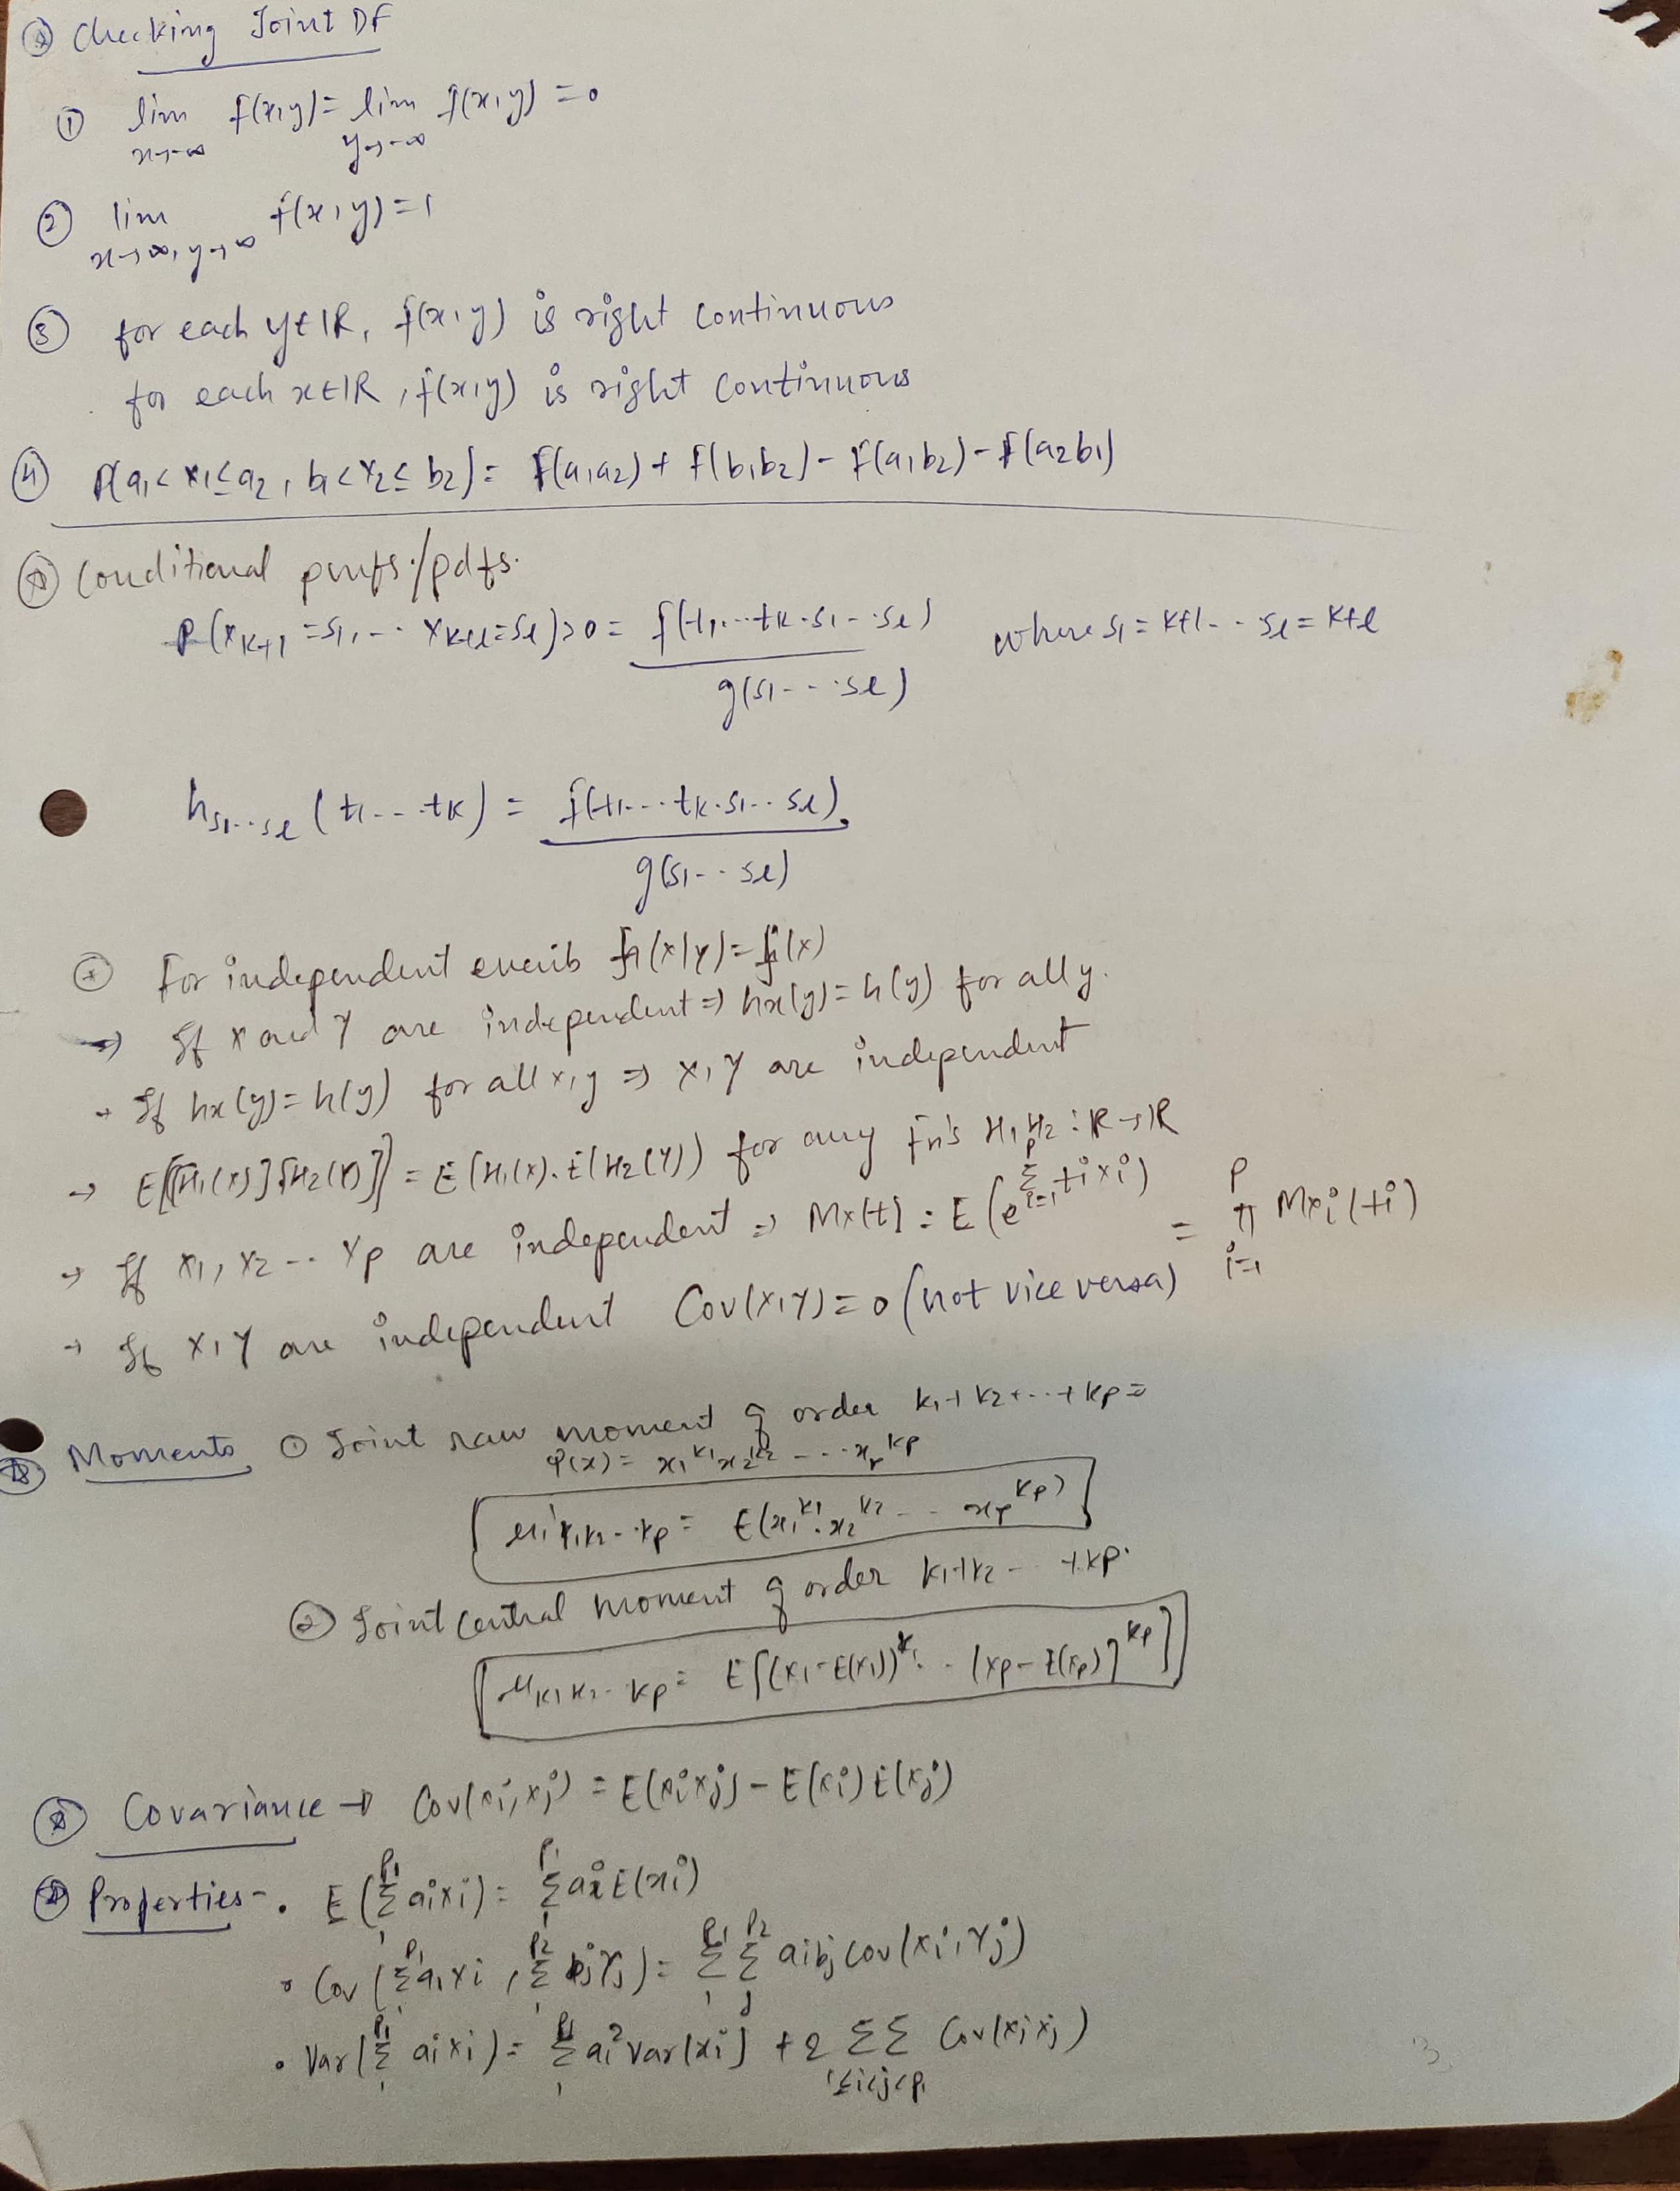 ⊛ Checking Joint DF
① lim x→-∞ f(x,y) = lim y→-∞ f(x,y) = 0
② lim x→∞, y→∞ f(x,y) = 1
③ for each y∈IR, f(x,y) is right continuous
for each x∈IR, f(x,y) is right continuous
④ P(a1 < X1 ≤ a2, b1 < X2 ≤ b2) = F(a1a2) + F(b1b2) - F(a1b2) - F(a2b1)
⊛ Conditional pmfs./pdfs.
P(X_{k+1} = s1, -.. X_{k+l} = sl) > 0 = f(t1,...tk.s1-..sl) / g(s1--.sl) where s1 = k+1-.. sl = k+l
h_{s1..sl} (t1--.tk) = f(t1-..tk.s1..sl) / g(s1-.sl)
⊛ for independent events (x|y) = (x)
→ If X and Y are independent ⇒ hx(y) = h(y) for all y.
→ If hx(y) = h(y) for all x,y ⇒ X,Y are independent
→ E[[H1(X)][H2(Y)]] = E(H1(X).E(H2(Y)) for any fn's H1,H2 : IR→IR
→ If X1, X2 -.. Xp are independent ⇒ Mx(t) = E(e^{Σ_{i=1}^{p} ti xi}) = π_{i=1}^{p} Mxi(ti)
→ If X,Y are independent Cov(X,Y) = 0 (not vice versa)
⊛ Moments ① Joint raw moment of order k1+k2+...+kp =
φ(x) = x1^{k1} x2^{k2} --.. xp^{kp}
μ'k1k2-.kp = E(x1^{k1}.x2^{k2} -- xp^{kp})
② Joint Central moment of order k1+k2 - .. +kp.
μk1k2-.kp = E[(X1-E(X1))^{k1} .. (Xp-E(Xp)]^{kp}]
⊛ Covariance → Cov(xi,xj) = E(xixj) - E(xi)E(xj)
⊛ Properties - • E(Σ_{1}^{p1} aixi) = Σ_{1}^{p1} ai E(xi)
• Cov(Σ_{1}^{p1} aixi, Σ_{1}^{p2} bjYj) = Σ_{1}^{p1} Σ_{j}^{p2} aibj Cov(xi,Yj)
• Var(Σ_{1}^{p1} aixi) = Σ_{1}^{p1} ai² Var(xi) + 2 ΣΣ_{1≤i<j<p1} Cov(xixj)